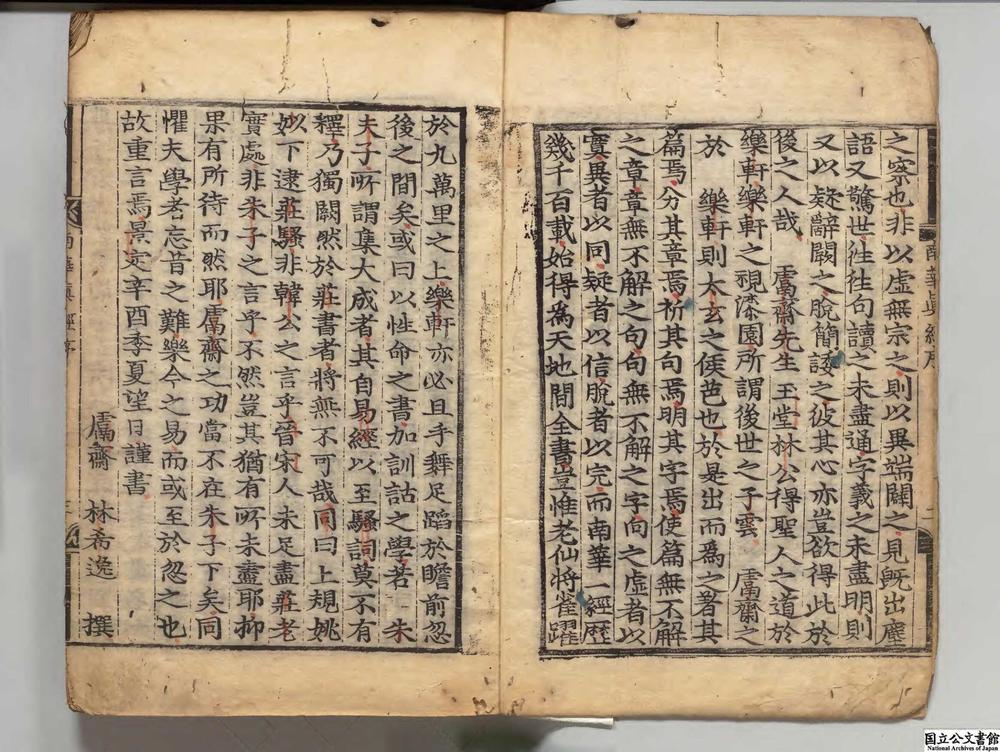 之察也非以虛無宗之則以異端闢之見旣出塵
語又驚世往往句讀之未盡通字義之未盡明則
又以疑辭闕之脫簡諉之彼其心亦豈欲得此於
後之人哉　鬳齋先生王堂林公得聖人之道於
樂軒樂軒之視漆園所謂後世之子雲　鬳齋之
於　樂軒則太玄之侯芭也於是出而為之著其
篇焉分其章焉析其句焉明其字焉使篇無不解
之章章無不解之句句無不解之字向之虛者以
實異者以同疑者以信脫者以完而南華一經歷
幾千百載始得為天地間全書豈惟老仙將雀躍
於九萬里之上樂軒亦必且手舞足蹈於瞻前忽
後之間矣或曰以性命之書加訓詁之學若　朱
夫子所謂集大成者其自易經以至騷詞莫不有
釋乃獨闕然於莊書者將無不可哉同曰上規姚
姒下逮莊騷非韓公之言乎晉宋人未足盡莊老
實處非朱子之言乎不然豈其猶有所未盡耶抑
果有所待而然耶鬳齋之功當不在朱子下矣同
懼夫學者忘昔之難樂今之易而或至於忽之也
故重言焉景定辛酉季夏望日謹書
鬳齋　林希逸　撰
南華眞經序
二
国立公文書館
National Archives of Japan